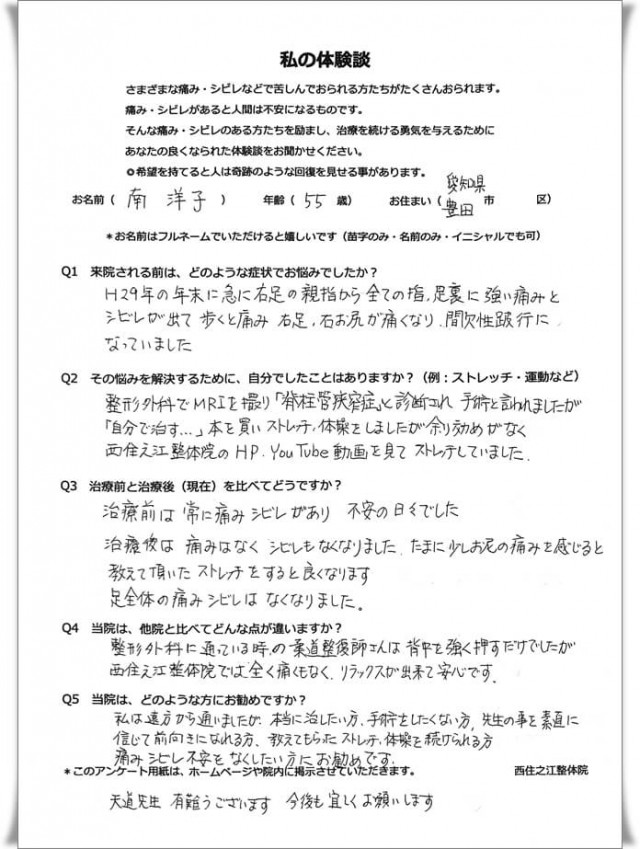 私の体験談
さまざまな痛み・シビレなどで苦しんでおられる方たちがたくさんおられます。
痛み・シビレがあると人間は不安になるものです。
そんな痛み・シビレのある方たちを励まし、治療を続ける勇気を与えるために
あなたの良くなられた体験談をお聞かせください。
◎希望を持てると人は奇跡のような回復を見せる事があります。
お名前（ 南 洋子 ） 年齢（ 55 歳） お住まい（ 愛知県 豊田 市 区）
＊お名前はフルネームでいただけると嬉しいです（苗字のみ・名前のみ・イニシャルでも可）
Q1 来院される前は、どのような症状でお悩みでしたか？
H29年の年末に急に右足の親指から全ての指、足裏に強い痛みと
シビレが出て歩くと痛み 右足、右お尻が痛くなり、間欠性跛行に
なっていました
Q2 その悩みを解決するために、自分でしたことはありますか？（例：ストレッチ・運動など）
整形外科でMRIを撮り「脊柱管狭窄症」と診断され 手術と言われましたが
「自分で治す…」本を買いストレッチ、体操をしましたが余り効めがなく
西住之江整体院のHP、YouTube動画を見てストレッチしていました。
Q3 治療前と治療後（現在）を比べてどうですか？
治療前は常に痛みシビレがあり 不安の日々でした
治療後は 痛みはなく シビレもなくなりました、たまに少しお尻の痛みを感じると
教えて頂いたストレッチをすると良くなります
足全体の痛みシビレはなくなりました。
Q4 当院は、他院と比べてどんな点が違いますか？
整形外科に通っている時の柔道整復師さんは背中を強く押すだけでしたが
西住之江整体院では全く痛くもなく、リラックスが出来て安心です。
Q5 当院は、どのような方にお勧めですか？
私は遠方から通いましたが、本当に治したい方、手術をしたくない方、先生の事を素直に
信じて前向きになれる方、教えてもらったストレッチ、体操を続けられる方
痛みシビレ不安をなくしたい方にお勧めです。
＊このアンケート用紙は、ホームページや院内に掲示させていただきます。 西住之江整体院
天道先生 有難うございます 今後も宜しくお願いします